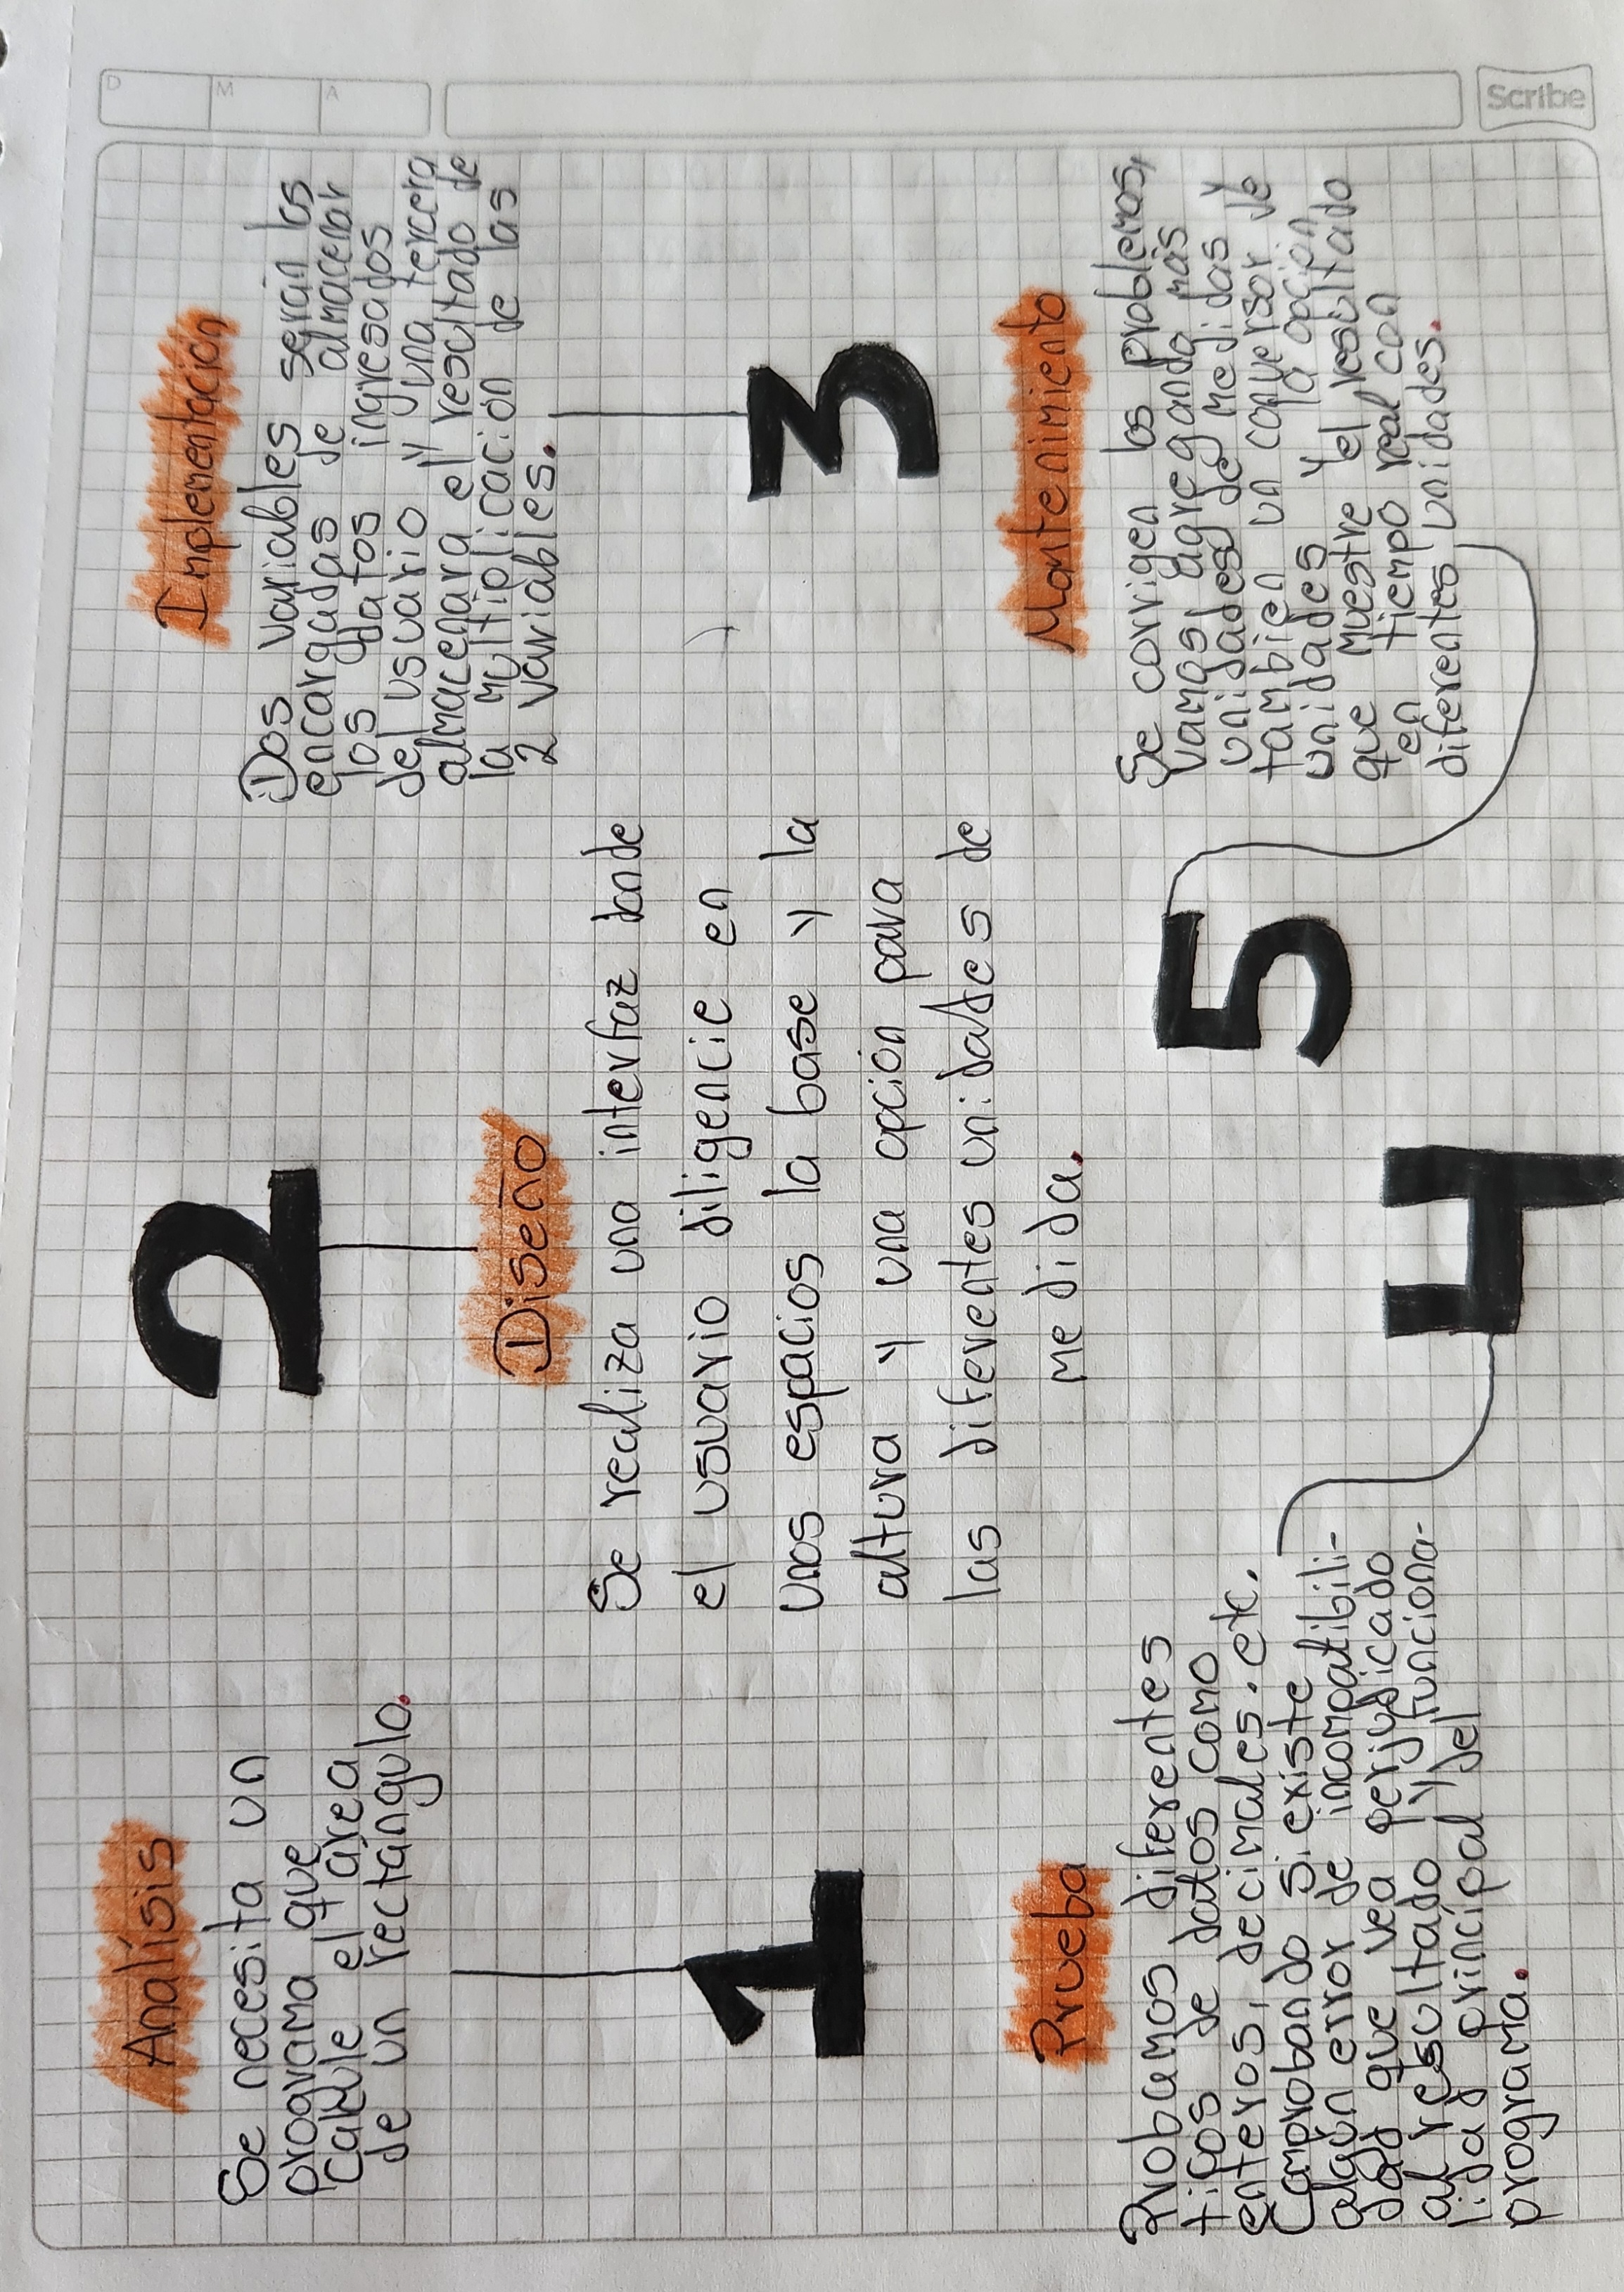 D
M
A
Scribe
Analísis
Se necesita un
programa que
Calcule el área
de un rectángulo.
1
2
Diseño
Se realiza una interfaz donde
el usuario diligencie en
unos espacios la base y la
altura y una opción para
las diferentes unidades de
medida.
Implementación
Dos variables serán las
encargadas de almacenar
los datos ingresados
del usuario y una tercera
almacenara el resultado de
la multiplicación de las
2 variables.
3
Prueba
Probamos diferentes
tipos de datos como
enteros, decimales. etc.
Comprobando si existe
algún error de incompatibili-
dad que vea perjudicado
al resultado y funciona-
lidad principal del
programa.
4
5
Mantenimiento
Se corrigen los problemas,
vamos agregando más
unidades de medidas y
tambien un conversor de
unidades y la opción
que muestre el resultado
en tiempo real con
diferentes unidades.